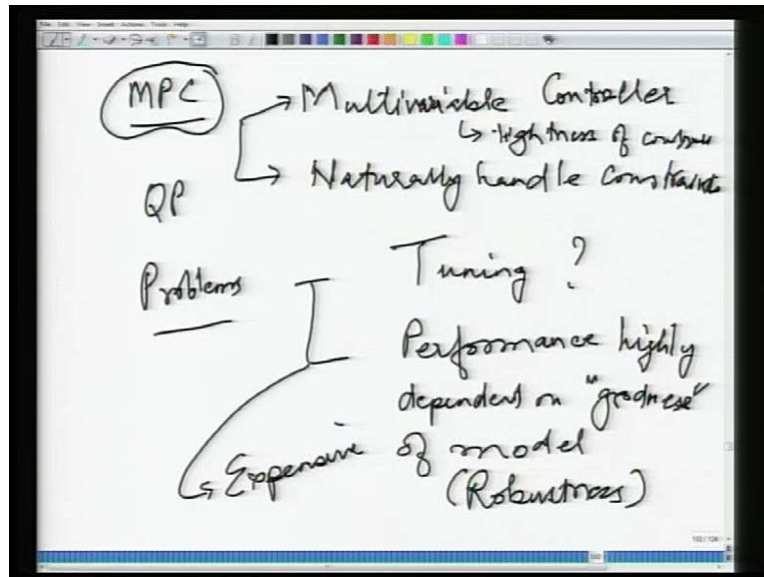 MPC
Multivariable Controller
tightness of
Naturally handle constraints
QP
Problems
Tuning ?
Performance highly
dependent on "goodness"
of model
(Robustness)
Expensive